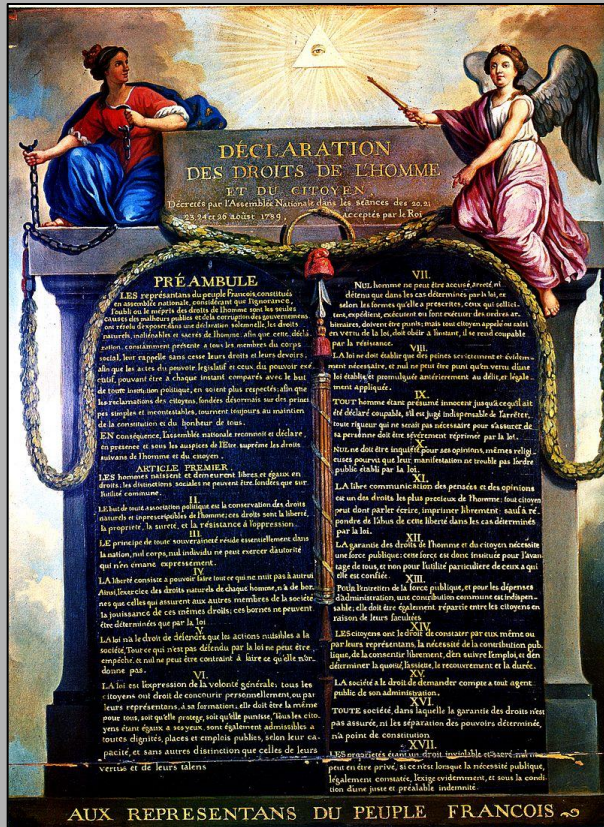 DÉCLARATION
DES DROITS DE L'HOMME
ET DU CITOYEN
Décretés par l'Assemblée Nationale dans les séances des 20, 21
23, 24 et 26 août 1789, acceptés par le Roi
PRÉAMBULE
LES représentans du peuple Francois, constitués
en assemblée nationale, considérant que l'ignorance,
l'oubli ou le mépris des droits de l'homme sont les seules
causes des malheurs publics et de la corruption des gouvernemens
ont résolu d'exposer, dans une déclaration solemnelle, les droits
naturels, inaliénables et sacrés de l'homme; afin que cette décla
ration, constamment présente a tous les membres du corps
social, leur rappelle sans cesse leurs droits et leurs devoirs,
afin que les actes du pouvoir legislatif et ceux du pouvoir exé
cutif, pouvant être à chaque instant comparés avec le but
de toute institution politique, en soient plus respectés; afin que
les reclamations des citoyens, fondées désormais sur des princi
pes simples et incontestables, tournent toujours au maintien
de la constitution et du bonheur de tous.
EN conséquence, l'assemblée nationale reconnoit et déclare,
en presence et sous les auspices de l'Etre suprême les droits
suivans de l'homme et du citoyen.
ARTICLE PREMIER.
LES hommes naissent et demeurent libres et égaux en
droits; les distinctions sociales ne peuvent être fondées que sur
l'utilité commune.
II.
LE but de toute association politique est la conservation des droits
naturels et inprescriptibles de l'homme; ces droits sont la liberté,
la propriété, la sureté, et la résistance à l'oppression.
III.
LE principe de toute souveraineté réside essentiellement dans
la nation, nul corps, nul individu ne peut exercer d'autorité
qui n'en émane expressement.
IV.
LA liberté consiste a pouvoir faire tout ce qui ne nuit pas à autrui
Ainsi, l'exercice des droits naturels de chaque homme, n'a de bor-
nes que celles qui assurent aux autres membres de la société
la jouissance de ces mêmes droits; ces bornes ne peuvent
être déterminées que par la loi
V.
LA loi n'a le droit de défendre que les actions nuisibles a la
société. Tout ce qui n'est pas défendu par la loi ne peut être
empêché, et nul ne peut être contraint à faire ce qu'elle n'or-
donne pas.
VI.
LA loi est l'expression de la volonté générale; tous les
citoyens ont droit de concourir personnellement, ou par
leurs représentans, à sa formation; elle doit être la même
pour tous, soit qu'elle protege, soit qu'elle punisse. Tous les cito
yens étant égaux a ses yeux, sont également admissibles a
toutes dignités, places et emplois publics, selon leur ca
pacité, et sans autres distinction que celles de leurs
vertus et de leurs talens
VII.
NUL homme ne peut être accusé, arreté, ni
détenu que dans les cas déterminés par la loi, et
selon les formes qu'elle a prescrites, ceux qui sollici-
tent, expédient, exécutent ou font exécuter des ordres ar-
bitraires, doivent être punis; mais tout citoyen appelé ou saisi
en vertu de la loi, doit obéir a l'instant, il se rend coupable
par la résistance.
VIII.
LA loi ne doit établir que des peines strictement et évidem-
ment nécessaire, et nul ne peut être puni qu'en vertu d'une
loi établie et promulguée antérieurement au délit, et légale-
ment appliquée.
IX.
TOUT homme étant présumé innocent jusqu'a ce qu'il ait
été déclaré coupable, s'il est jugé indispensable de l'arrêter,
toute rigueur qui ne serait pas nécessaire pour s'assurer de
sa personne doit être sévèrement réprimée par la loi.
X.
NUL ne doit être inquiété pour ses opinions, mêmes religi
euses pourvu que leur manifestation ne trouble pas l'ordre
public établi par la loi.
XI.
LA libre communication des pensées et des opinions
est un des droits les plus precieux de l'homme; tout citoyen
peut donc parler écrire, imprimer librement; sauf à ré-
pondre de l'abus de cette liberté dans les cas déterminés
par la loi.
XII.
LA garantie des droits de l'homme et du citoyen nécessite
une force publique; cette force est donc instituée pour l'avan-
tage de tous, et non pour l'utilité particuliere de ceux a qui
elle est confiée.
XIII.
POUR l'entretien de la force publique, et pour les dépenses
d'administration, une contribution commune est indispen-
sable; elle doit être également répartie entre les citoyens en
raison de leurs facultées.
XIV.
LES citoyens ont le droit de constater par eux même ou
par leurs représentans, la nécessité de la contribution pub-
lique, de la consentir librement, d'en suivre l'emploi, et d'en
déterminer la quotité, l'assiette, le recouvrement et la durée.
XV.
LA société a le droit de demander compte a tout agent
public de son administration.
XVI.
TOUTE société, dans laquelle la garantie des droits n'est
pas assurée, ni les séparation des pouvoirs déterminée,
n'a point de constitution
XVII.
LES propriétés étant un droit inviolable et sacré, nul ne
peut en être privé, si ce n'est lorsque la nécessité publique,
légalement constatée, l'exige evidemment, et sous la condi-
tion d'une juste et préalable indemnité.
AUX REPRESENTANS DU PEUPLE FRANCOIS